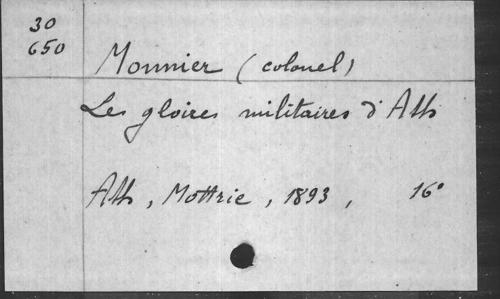 30
650
Monnier (colonel)
Les gloires militaires d'Ath
Ath, Mottrie, 1893, 16°